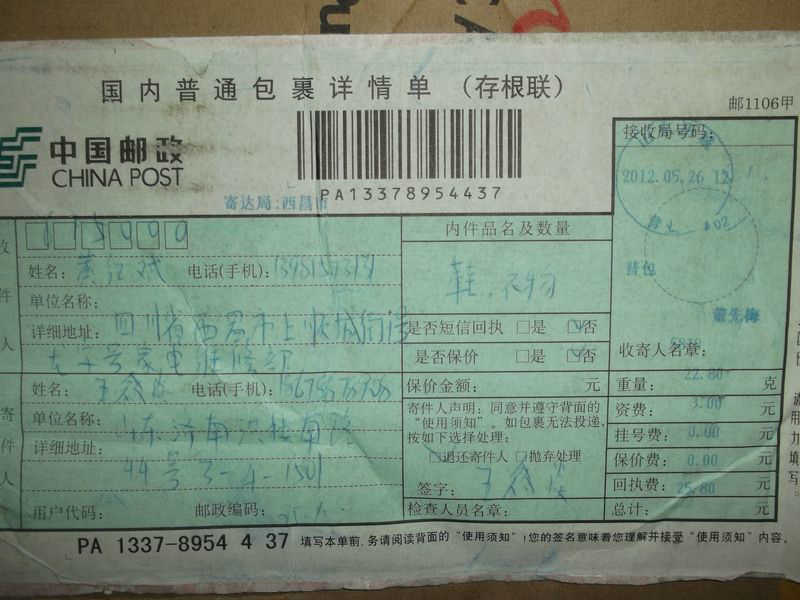 国内普通包裹详情单 (存根联)
邮1106甲
中国邮政
CHINA POST
PA13378954437
寄达局:西昌市
接收局号码:
2012.05.26 12
内件品名及数量
姓名:
电话(手机):
鞋.衣物
背包
董先梅
单位名称:
详细地址: 四川省西昌市上顺城街
是否短信回执 □是 □否
号家电维修部
是否保价 □是 □否
收寄人名章:
姓名: 王
电话(手机):
保价金额: 元
重量: 克
22.80
单位名称:
寄件人声明: 同意并遵守背面的
"使用须知"。如包裹无法投递,
按如下选择处理:
资费: 3.00 元
山东济南
挂号费: 0.00 元
详细地址:
44号3-4-1501
□退还寄件人 □抛弃处理
保价费: 0.00 元
签字: 王
回执费: 25.80 元
用户代码:
邮政编码:
检查人员名章:
总计: 元
PA 1337-8954 4 37 填写本单前,务请阅读背面的"使用须知"!您的签名意味着您理解并接受"使用须知"内容。